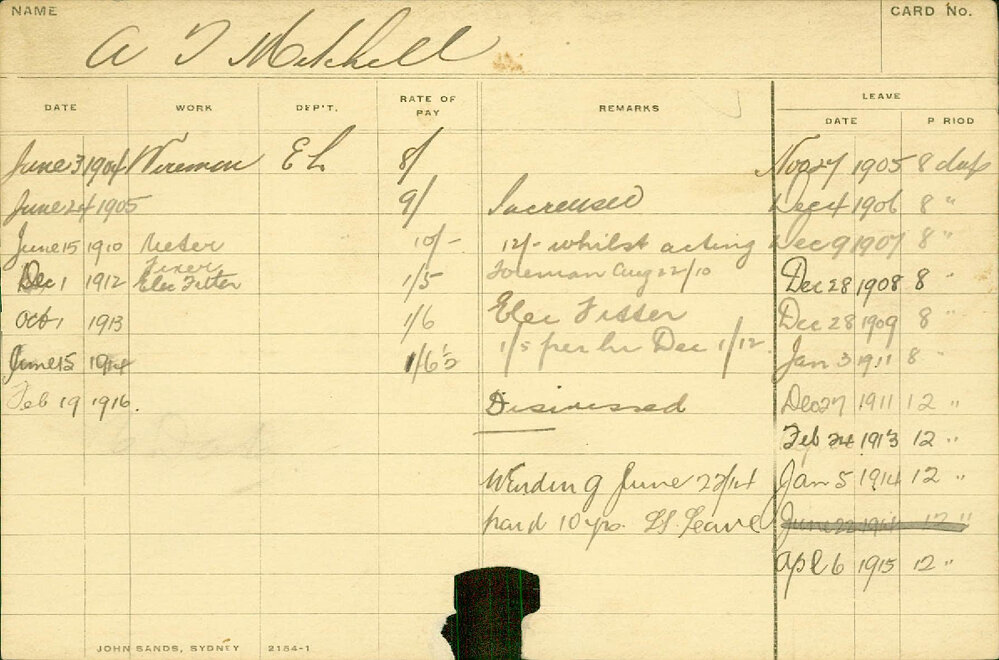 NAME
CARD No.
A T Mitchell
DATE WORK DEP'T. RATE OF PAY REMARKS LEAVE
DATE P RIOD
June 3 1904 Wireman EL 8/ Nov 27 1905 8 days
June 24 1905 9/ Increased Dec 4 1906 8 "
June 15 1910 Meter Fixer 10/- 12/- whilst acting Dec 9 1907 8 "
Dec 1 1912 Elec Fitter 1/5 Foreman Aug 22/10 Dec 28 1908 8 "
Oct 1 1913 1/6 Elec Fitter Dec 28 1909 8 "
June 15 1914 1/6½ 1/5 per hr Dec 1/12 Jan 3 1911 8 "
Feb 19 1916. Dismissed Dec 27 1911 12 "
Feb 24 1913 12 "
W Ending June 27/14 Jan 5 1914 12 "
paid 10 yrs. LS Leave June 22 1914 12 "
Apl 6 1915 12 "
JOHN SANDS, SYDNEY 2184-1